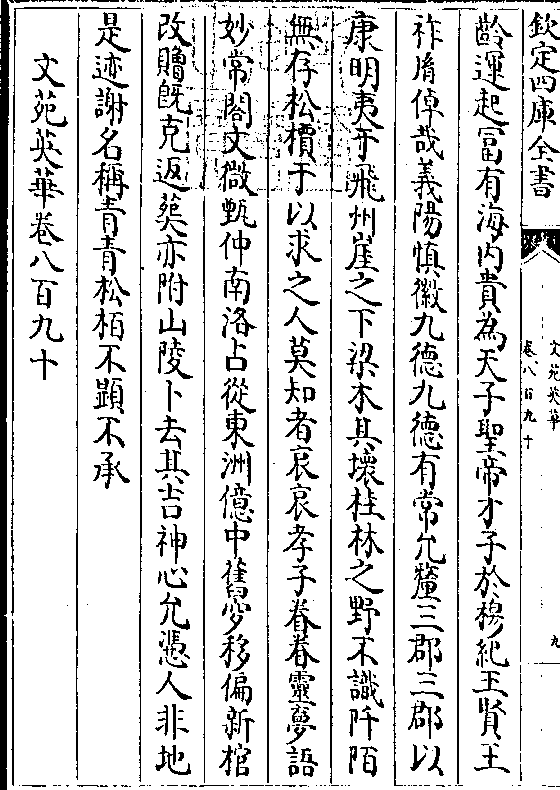 欽定四庫全書
文苑英華
卷八百九十
九
齡運起冨有海内貴為天子聖帝才子於穆紀王賢王
祚胤倬哉義陽慎徽九德九德有常允釐三郡三郡以
康明夷于飛州崖之下梁木其壞桂林之野不識阡陌
無存松檟于以求之人莫知者哀哀孝子眷眷靈夢語
妙常閣文微甄仲南洛占從東洲億中舊穸移偏新棺
改贈旣克返葬亦附山陵卜去其吉神心允憑人非地
是迹謝名稱青青松柏不顯不承
文苑英華卷八百九十